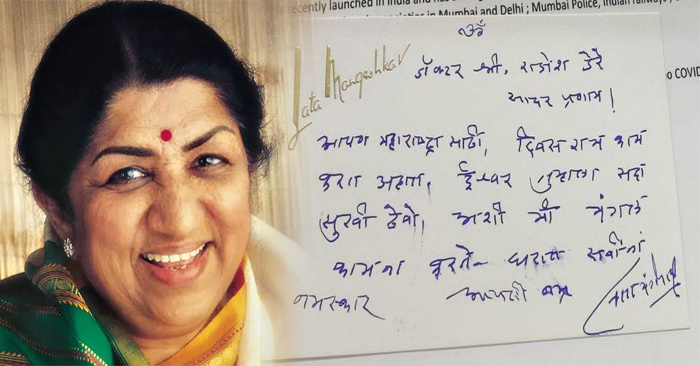 ecently launched in India and has
in Mumbai and Delhi ; Mumbai Police, Indian railways
o COVID
ॐ
Lata Mangeshkar
डॉक्टर श्री. राजेश डेरे
सादर प्रणाम !
आपण महाराष्ट्रा साठी, दिवस रात्र काम
करता आहात, ईश्वर तुम्हाला सदा
सुखी ठेवो, अशी मी मंगल
कामना करते - घरात सर्वांना
नमस्कार आपली नम्र